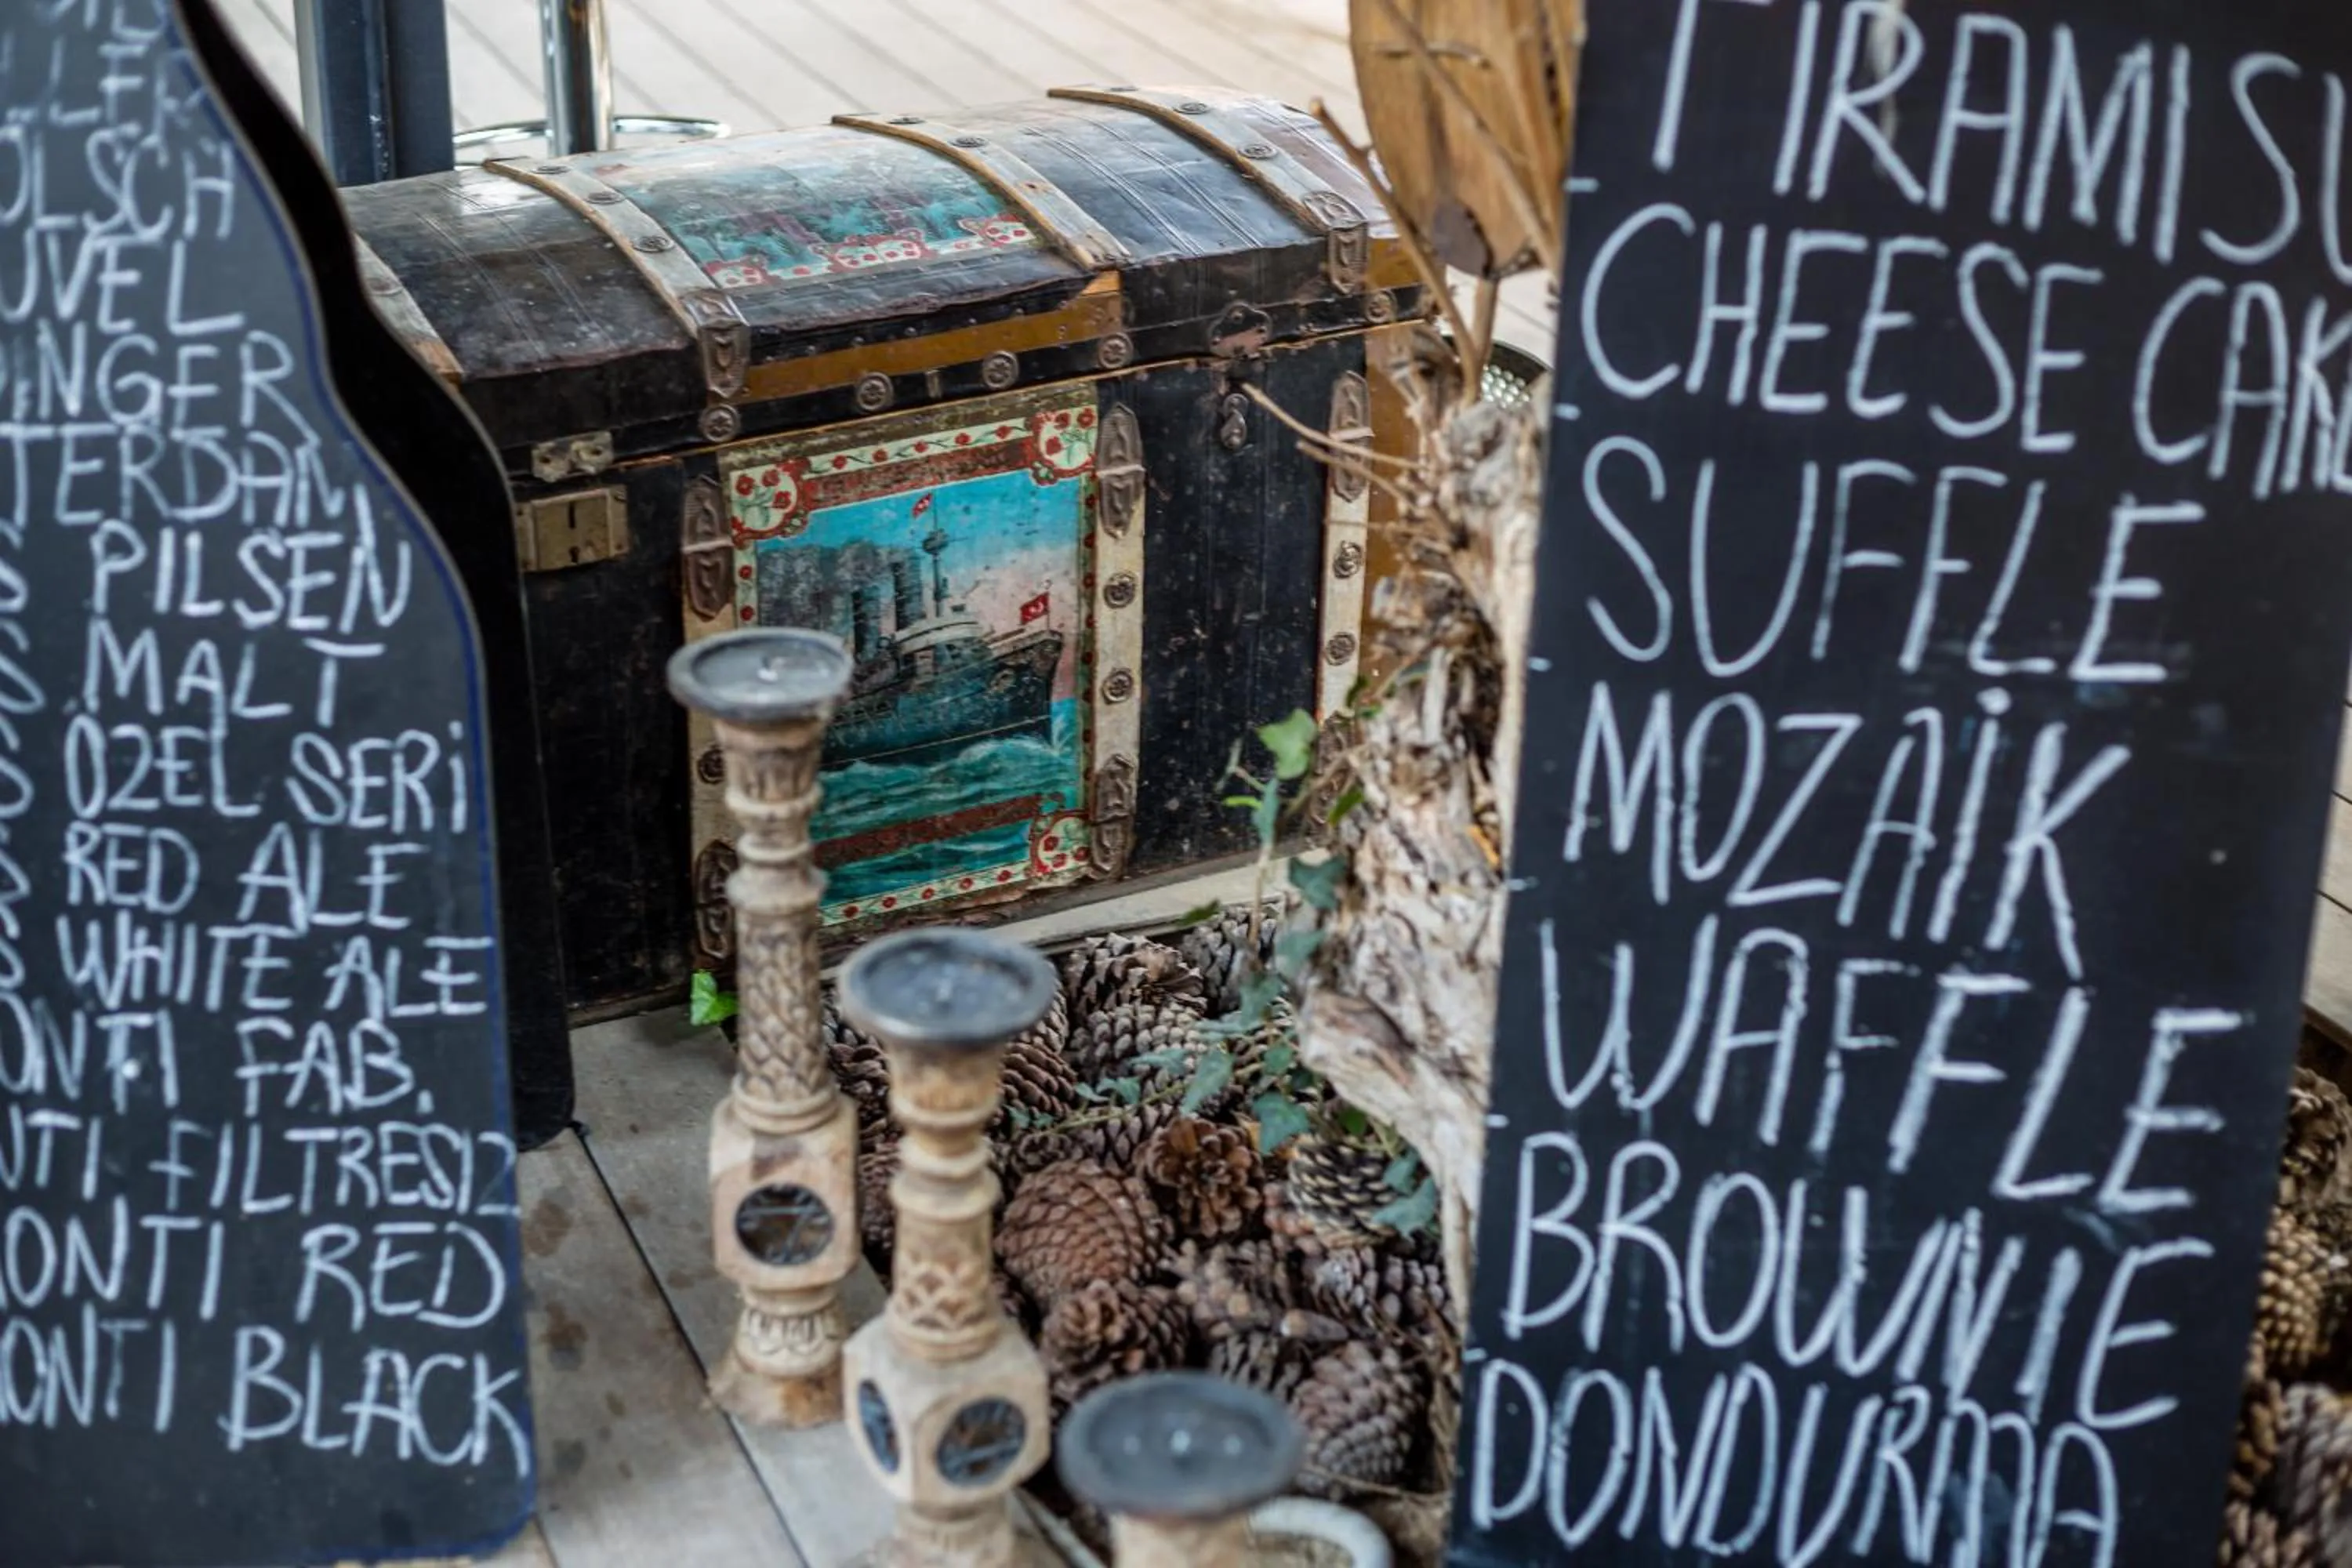 OLSCH
UVEL
INGER
TERDAM
PILSEN
MALT
ÖZEL SERİ
RED ALE
WHITE ALE
ONTI FAB.
NTI FILTRESIZ
ONTI RED
ONTI BLACK
TIRAMISU
CHEESE CAKE
SUFFLE
MOZAİK
WAFFLE
BROWNIE
DONDURMA